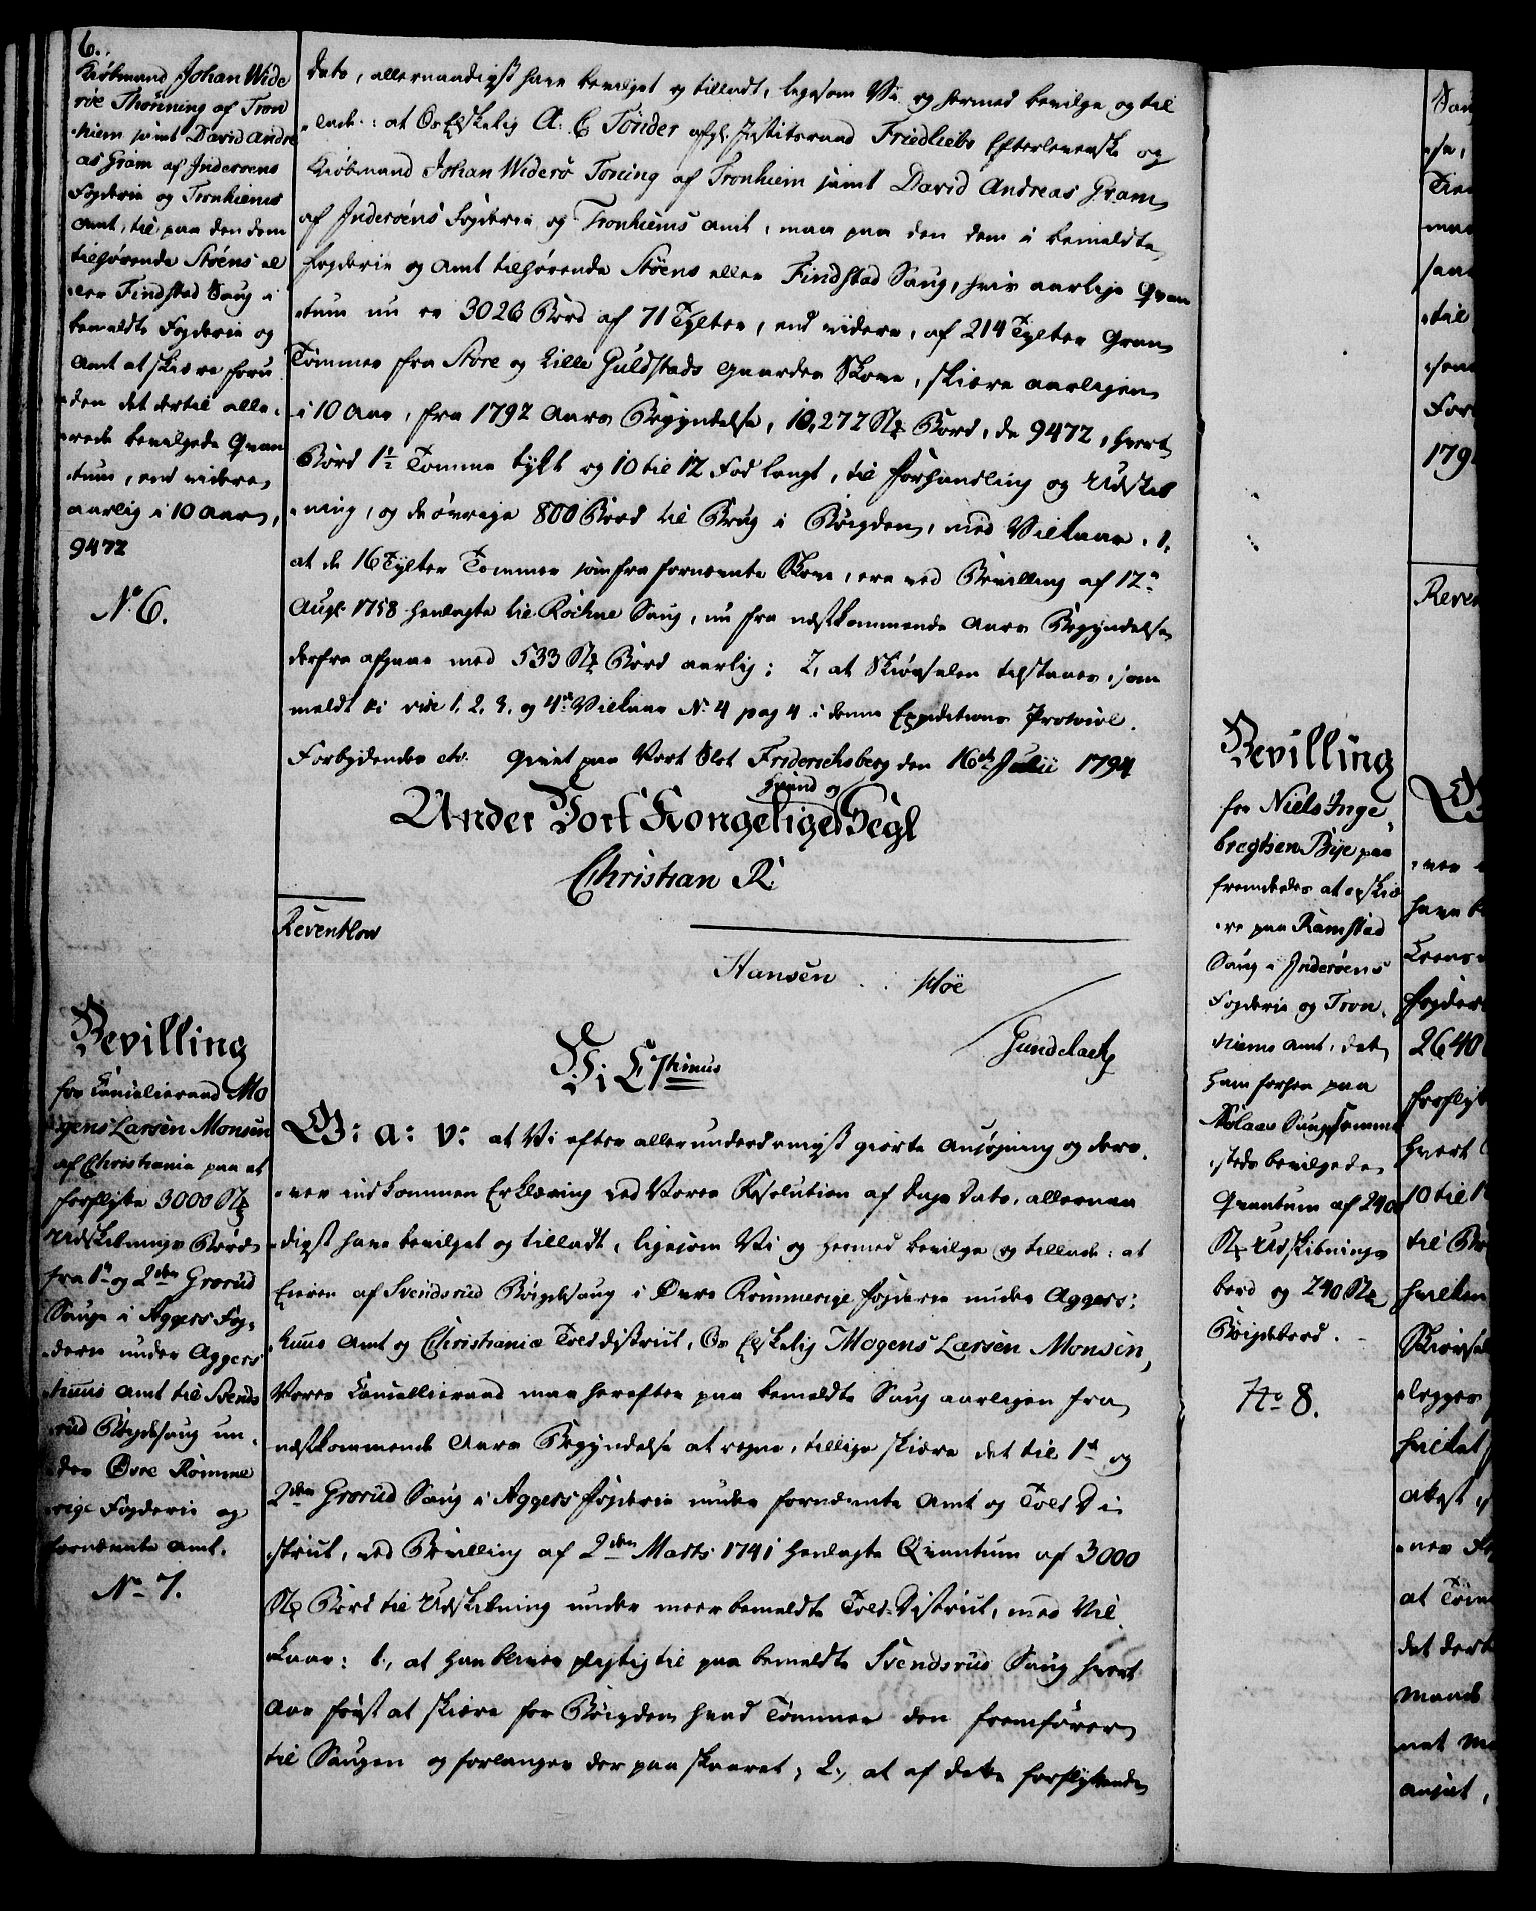 6.
Kiøbmand Johan Wide
røe Thonning af Tron
hiem samt David Andre
as Gram af Inderøens
Fogderie og Tronhiems
Amt, til, paa den dem
tilhørende Støens el
ler Findstad Saug i
bemeldte Fogderie og
Amt at skiære foru
den det dertil alle,
rede bevilgede Qvan
tum, end videre,
aarlig i 10 Aar,
9472
No 6.
dato, allernaadigst have bevilget og tilladt, ligesom Vi og hermed bevilge og til
lade: at Os Elskelig A. C. Tønder afg. Justitsraad Friedliebs Efterleverske og
Kiøbmand Johan Widerø Toning af Tronhiem samt David Andreas Gram
af Inderøens Fogderie og Tronhiems Amt, maa paa den dem i bemeldte
Fogderie og Amt tilhørende Støens eller Findstad Saug, hvis aarlige Qvan
tum nu er 3026 Bord af 71 Tylter, end videre, af 214 Tylter Gran
Tømmer fra Store og Lille Guldstads Gaardes Skove, skiære aarligen
i 10 Aar, fra 1792 Aars Begyndelse, 10,272 Stk Bord, de 9472, hvert
Bord 1½ Tomme tykt og 10 til 12 Fod langt, til Forhandling og Udskib
ning, og de øvrige 800 Bord til Brug i Bøigden, med Vilkaar, 1,
at de 16 Tylter Tømmer som fra fornævnte Skove, ere ved Bevilling af 12te
Augs. 1758 henlagte til Røihne Saug, nu fra næstkommende Aars Begyndelse
derfra afgaae med 533 Stk Bord aarlig; 2, at Skiørselen tilstaaes, som
meldt er ved 1, 2, 3, og 4de Vilkaar No 4 pag 4 i denne Expeditions Protocol.
Forbydendes etc. Givet paa Vort Slot Friderichsberg den 16de Julii 1794
Haand og
Under Vort Kongelige Segl
Christian R.
Reventlow
Hansen Høe
Gundelach
Bevilling
for Cancelieraad Mo
gens Larsen Monsen
af Christiania paa at
forflytte 3000 Stk
Udskibnings Bord
fra 1te og 2den Grorud
Sauge i Aggers Fog,
derie under Aggers
huus Amt til Svends
rud Bøigdesaug un,
der Øvre Romme
rige Fogderie og
fornævnte Amt.
No 7.
Vi C. 7timus
G: A: V: at Vi efter allerunderdanigst giorte Ansøgning og dero,
ver indkommen Erklæring ved Vores Resolution af Dags Dato, allernaa
digst have bevilget og tilladt, ligesom Vi og hermed bevilge og tillade: at
Eieren af Svendsrud Bøigdesaug i Øvre Rommerige Fogderie under Aggers:
huus Amt og Christianiæ Tolddistrict, Os Elskelig Mogens Larsen Monsen,
Vores Cancellieraad maa herefter paa bemeldte Saug aarligen fra
næstkommende Aars Begyndelse at regne, tillige skiære det til 1te og
2den Grorud Saug i Aggers Fogderie under fornævnte Amt og Told Di
strict, ved Bevilling af 2den Marts 1741 henlagte Qvantum af 3000
Stk Bord til Udskibning under meerbemeldte Told-District, med Vil
kaar: 1., at han bliver pligtig til paa bemeldte Svendsrud Saug hvert
Aar først at skiære for Bøigden hvad Tømmer den fremfører
til Saugen og forlanger der paa skaaret; 2., at af dette forflyttende
Bevilling
for Niels Inge,
bregtsen Bye paa
fremdeles at opskiæ
re paa Ramstad
Saug i Inderøens
Fogderie og Tron,
hiems Amt, det
ham forhen paa
Saug sammen
steds bevilgede
Qvantum af 2400
Stk Udskibnings
bord og 240 Stk
Bøigdebord.
No 8.
Sau
Tien
maa
saa
til
For
179
Reven
ver
have b
Fogder
2640
forflyt
hvert
10 til 1
til Br
hvilken
Skiørsel
legges
hvilket
at Tøm
det dert
maade